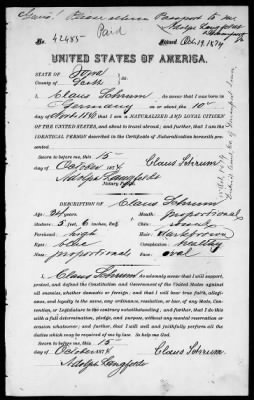 Gents! Please return Passport to me
Adolph Langfeldt
Davenport
Paid
No. 42485 Issued Oct. 19, 1874
UNITED STATES OF AMERICA.
STATE OF Iowa
COUNTY OF Scott
I, Claus Schrum, do swear that I was born in
Germany on or about the 10th
day of ; that I am a NATURALIZED AND LOYAL CITIZEN
OF THE UNITED STATES, and about to travel abroad; and further, that I am the
IDENTICAL PERSON described in the Certificate of Naturalization herewith
presented.
Sworn to before me, this 15
day of October 1874 Claus Schrum
Adolph Langfeldt
Notary Public.
DESCRIPTION OF Claus Schrum
Age: years Mouth: proportional
Stature: 5 feet, 6 inches, Eng. Chin: round
Forehead: high Hair: dark brown
Eyes: blue Complexion: healthy
Nose: proportional Face: oval
I, Claus Schrum, do solemnly swear that I will support,
protect, and defend the Constitution and Government of the United States against
all enemies, whether domestic or foreign; and that I will bear true faith, allegi-
ance, and loyalty to the same, any ordinance, resolution, or law of any State, Con-
vention, or Legislature to the contrary notwithstanding; and further, that I do this
with a full determination, pledge, and purpose, without any mental reservation or
evasion whatsoever; and further, that I will well and faithfully perform all the
duties which may be required of me by law. So help me God.
Sworn to before me, this 15
day of October 1874 Claus Schrum
Adolph Langfeldt